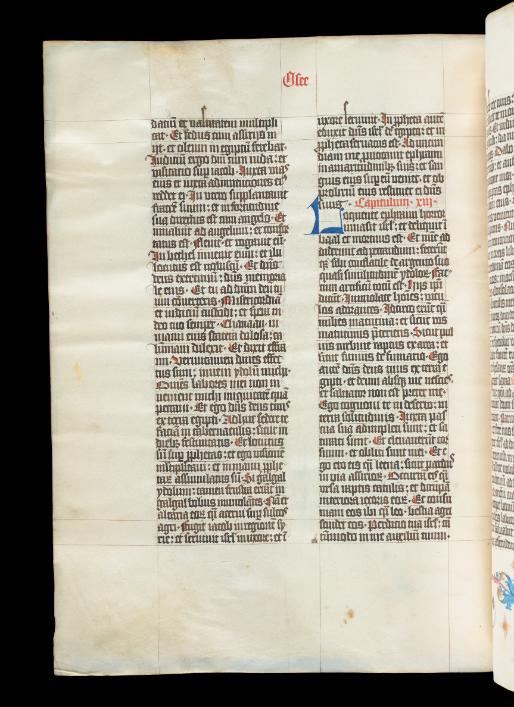 Osee
datiũ et vastitatem multipli
cat· Et fedus cum assirijs in
ijt· et oleum in egyptũ ferebat·
Iudiciũ ergo dñi cum iuda: et
visitatio sup iacob· Iuxta vias
eius et iuxta adinventiones eiꝰ
reddet ei· In utero supplantavit
fratrẽ suum: et in fortitudine
sua directus est cum angelo· Et
invaluit ad angelum: et confor
tatus est· Flevit· et rogavit eũ·
In bethel invenit eum: et ibi
locutus est nobiscũ· Et dñs
deus exercituũ: dñs memoriale
eius· Et tu ad deum tuũ
convertẽris· Misericordiã
et iudiciũ custodi: et spera in
deo tuo semper· Chanaan· in
manu eius statera dolosa: ca
lumniam dilexit· Et dixit effra
im· Verumtamen dives effec
tus sum: inveni ydolũ michi·
Omnes labores mei non in
venient michi iniquitatẽ quã
peccavi· Et ego dñs deus tuus
ex terra egipti· Adhuc sedere te
faciã in tabernaculis: sicut in
diebꝫ festivitatis· Et locutus
sũ sup ꝓphetas: et ego visionẽ
multiplicavi: et in manu ꝓphe
tarꝫ assimilatus sũ· Si galgal
ydolum: tamen frustra erãt in
galgal bobus immolantes· Nã et
altaria eorꝫ qͣsi acervi sup sulcos
agri· Fugit iacob in regionẽ sy
rie: et servivit isrl in uxorẽ: et ĩ
uxorẽ servavit· In ꝓpheta autẽ
eduxit dñs isrl de egypto: et in
ꝓpheta servatus est· Ad iracun
diam me provocavit ephraim
in amaritudinibꝫ suis: et san
guis eius sup eũ veniet· et ob
probriũ eius restituet ei dñs
suus· Capitulum· xiij·
Loquente ephraim horror
invasit isrl: et deliquit ĩ
baal et mortuus est· Et nũc ad
diderunt ad peccandum: fecerũt
qꝫ sibi conflatile de argento suo
quasi similitudinẽ ydolorꝫ· Fac
tum artificũ totũ est· Hijs ipsi
dicũt· Immolate hoies: vitu
los adorantes· Idcirco erũt qͣsi
nubes matutina: et sicut ros
matutinus p̃teriens· Sicut pul
vis turbine raptus ex area: et
sicut fumus de fumario· Ego
autẽ dñs deus tuus ex terra e
gipti· et deum absqꝫ me nescies:
et salvator non est preter me·
Ego cognovi te in deserto: in
terra solitudinis· Iuxta pas
cua sua adimpleti sunt: et sa
turati sunt· Et elevaverũt cor
suum· et obliti sunt mei· Et e
go ero eis qͣsi leena: sicut pardus
in via assirioꝫ· Occurrã eis qͣsi
ursa raptis catulis: et dirupã
interiora iecoris eorꝫ· Et consu
mam eos ibi qͣsi leo· bestia agri
scindet eos· Perditio tua isrl: tã
tũmodo in me auxiliũ tuum·